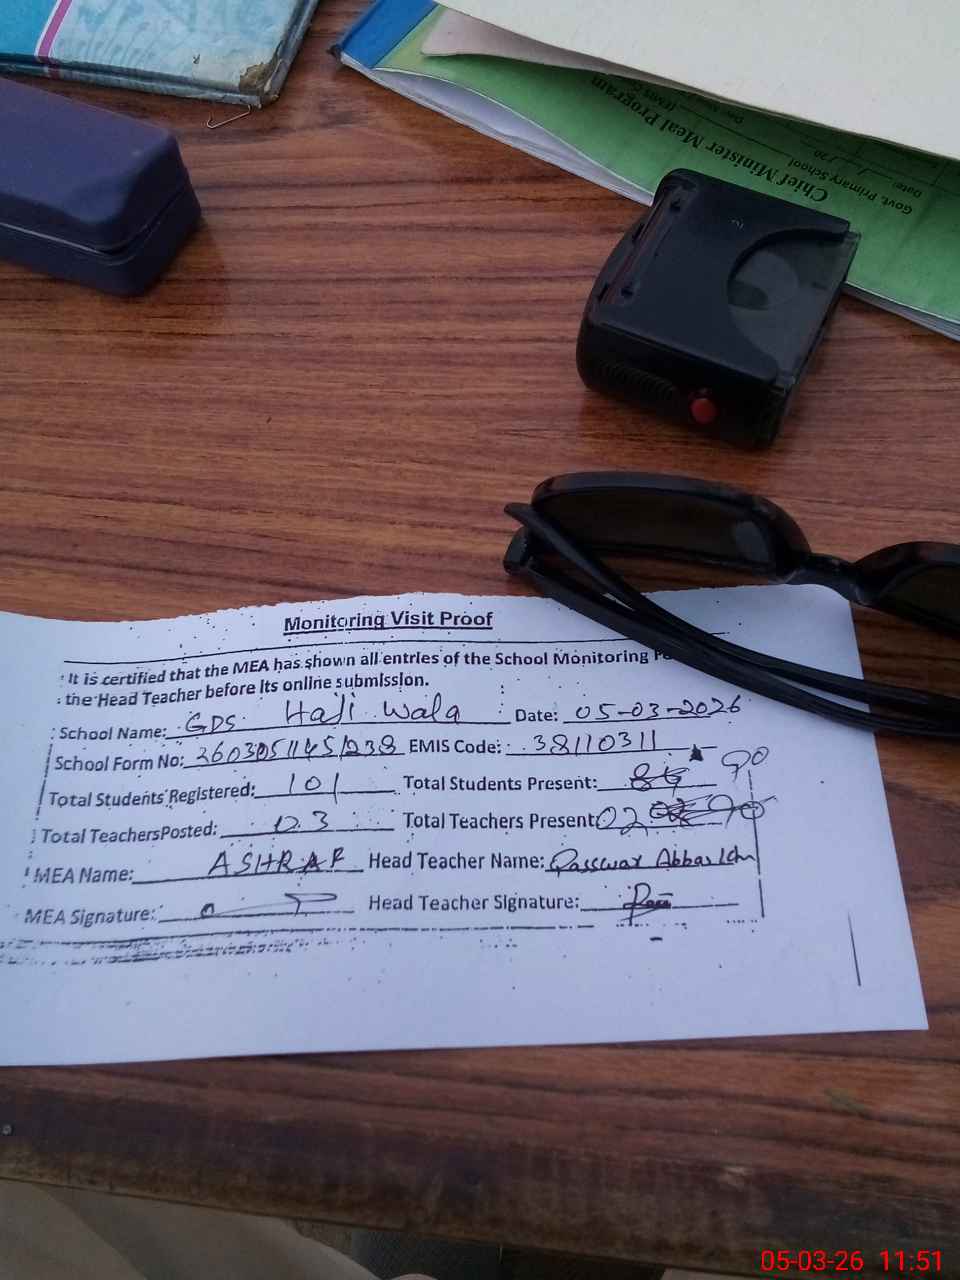 Chief Minister Meal Program
Govt. Primary School
Date:
/20
Monitoring Visit Proof
It is certified that the MEA has shown all entries of the School Monitoring
the Head Teacher before its online submission.
School Name: GPS Haji Wala Date: 05-03-2026
School Form No: EMIS Code: 38110311
Total Students Registered: 101 Total Students Present: 90
Total TeachersPosted: 03 Total Teachers Present: 02
MEA Name: ASHRAF Head Teacher Name: Abbas
MEA Signature: Head Teacher Signature:
05-03-26 11:51